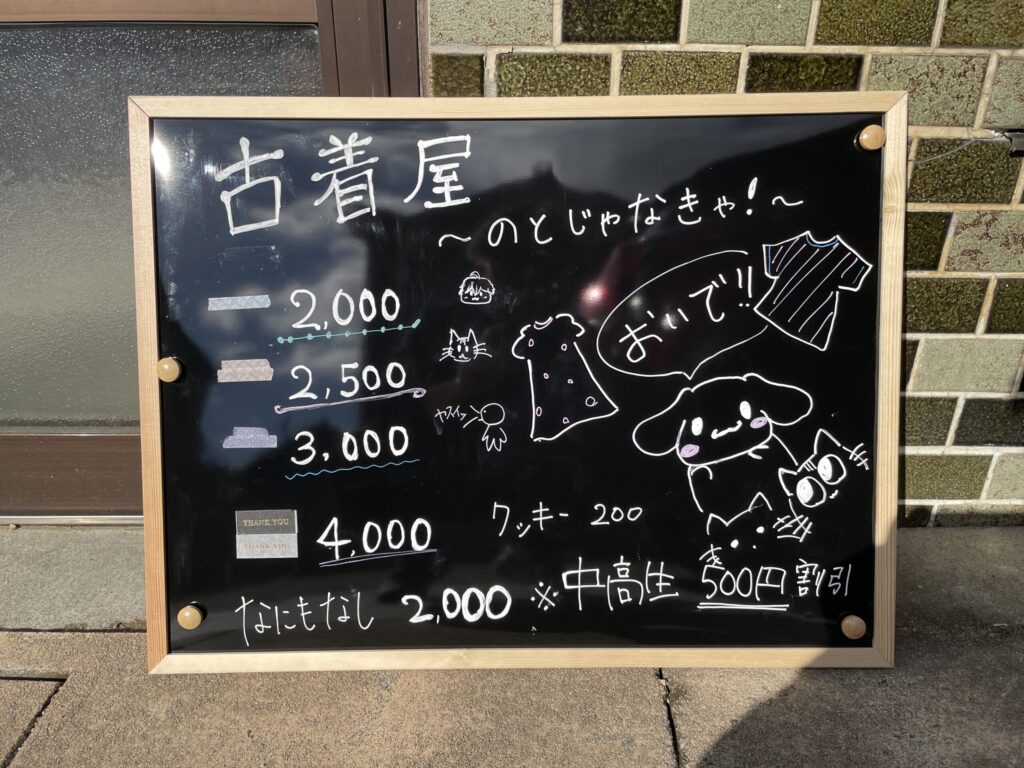 古着屋
～のとじゃなきゃ!～
おいで!!
2,000
2,500
3,000
ヤスイッ
THANK YOU
THANK YOU
4,000
クッキー 200
なにもなし 2,000
※中高生 500円割引